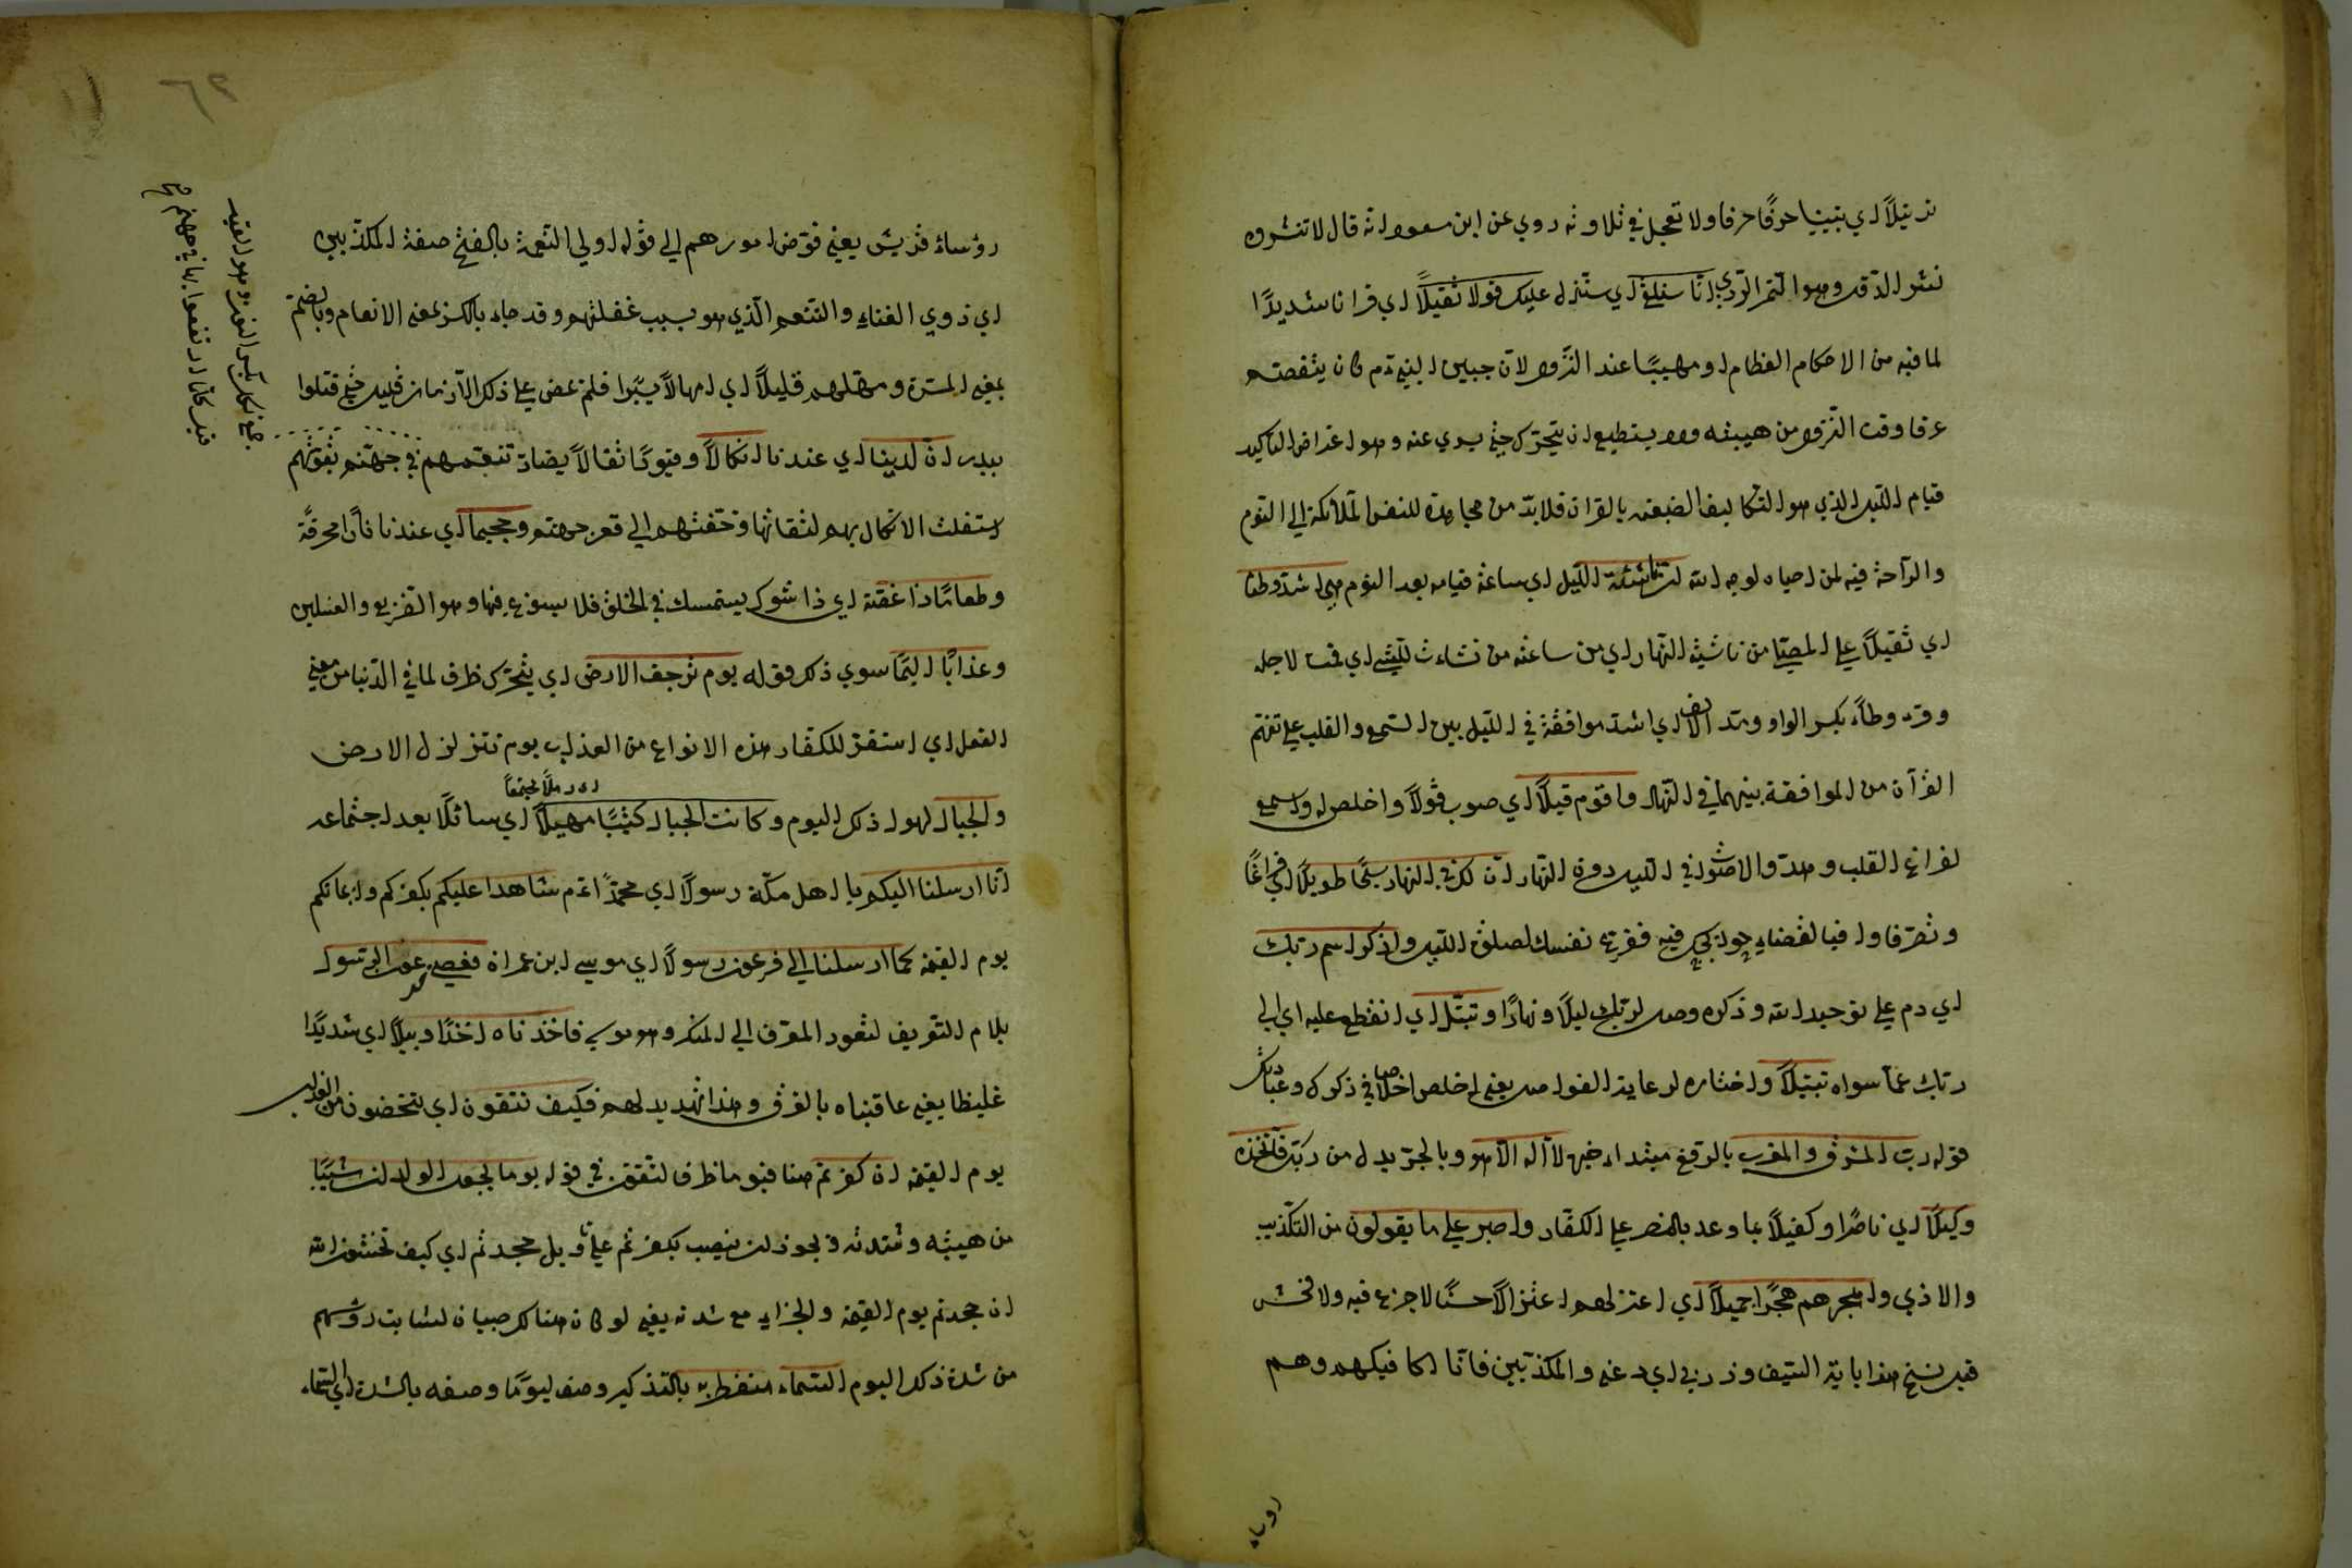 ترتيلاً اي تبيينا حرفًا حرفا ولا تعجل في تلاوته روي عن ابن مسعود انه قال لا تنثروه
نثر الدقل وهو التمر الردي انا سنلقي اي سننزل عليك قولا ثقيلاً اي قرانا شديدًا
لما فيه من الاحكام العظام او مهيبًا عند النزول لان جبين النبي عم كان يتفصد
عرقا وقت النزول من هيبته ولا يستطيع ان يتحرك حتي يسري عنه وهو اعتراض لتاكيد
قيام الليل الذي هو من التكاليف الصعبة بالقران فلا بد من مجاهدة للنفس المائلة الي النوم
والراحة فيه لمن احياه لوجه الله ان ناشئة الليل اي ساعة قيامه بعد النوم هي اشد وطئا
اي ثقيلاً علي المصلي من ناشئة النهار اي من ساعته من نشأت للشئ اي قمت لاجله
وقرء وطآء بكسر الواو ومد الالف اي اشد موافقة في الليل بين السمع والقلب علي تفهم
القرآن من الموافقة بينهما في النهار واقوم قيلاً اي صوب قولاً واخلص له واسمع
لفراغ القلب وهدو الاصوات في الليل دون النهار ان لك في النهار سبحًا طويلاً اي فراغًا
وتصرفا واقبالا لقضاء حوائجك فيه ففرغ نفسك لصلوة الليل واذكر اسم ربك
اي دم علي توحيد الله وذكره وصل لربك ليلاً ونهارًا وتبتل اي انقطع عليه اي الي
ربك عما سواه تبتيلاً واختاره لرعاية الفواصل يعني اخلص اخلاصا في ذكره وعبادتك
قوله رب المشرق والمغرب بالرفع مبتداء خبره لا اله الا هو وبالجر بدل من ربك فاتخذه
وكيلاً اي ناصرًا وكفيلاً بما وعد بالنصر علي الكفار واصبر علي ما يقولون من التكذيب
والاذي واهجرهم هجرًا جميلاً اي اعتزلهم اعتزالاً حسنًا لا جزع فيه ولا فحش
قيل نسخ هذا باية السيف وذرني اي دعني والمكذبين فانا اكافيكهم وهم
رؤساء
٦٢
رؤساء قريش يعني فوض امورهم الي قوله اولي النعمة بالفتح صفة المكذبين
اي ذوي الغناء والتنعم الذي هو سبب غفلتهم وقد جاء بالكسر بمعني الانعام وبالضم
بمعني المسرة ومهلهم قليلاً اي امهالاً يسيرا فلم يمض علي ذلك الا زمان قليل حتي قتلوا
ببدر ان لدينا اي عندنا انكالاً وقيودًا ثقالاً يضاد تنعمهم في جهنم بثقلهم
استفلت الانكال بهم لثقالتها وخفتهم الي قعر جهنم وجحيما اي عندنا نارًا محرقة
وطعامًا ذا غصة اي ذا شوك يستمسك في الحلق فلا يسوغ فيها وهو الضريع والغسلين
وعذابًا اليمًا سوي ذلك قوله يوم ترجف الارض اي يتحرك ظرف لما في لدينا من معني
الفعل اي استقر للكفار هذه الانواع من العذاب يوم تتزلزل الارض
والجبال لهول ذلك اليوم وكانت الجبال كثيبًا مهيلاً اي سائلًا بعد اجتماعه
اي رملاً مجتمعاً
انا ارسلنا اليكم يا اهل مكة رسولاً اي محمدًا عم شاهدا عليكم بكفركم وايمانكم
يوم القيمة كما ارسلنا الي فرعون رسولاً اي موسي ابن عمران فعصي فرعون الرسول
بلام التعريف لتعود المعرف الي المنكر وهو موسي فاخذناه اخذًا وبيلاً اي شديدًا
غليظا يعني عاقبناه بالغرق وهذا تهديد لهم فكيف تتقون اي تتحضون من العذاب
يوم القيمة ان كفرتم هنا فيوما ظرف لتتقون في قوله يوما يجعل الولدان شيبًا
من هيبته وشدته ويجوز ان ينصب بكفرتم علي تاويل جحدتم اي كيف تخشون الله
ان جحدتم يوم القيمة والجزاء مع شدته يعني لو كان هناك صبيان لشابت رؤسهم
من شدة ذلك اليوم السماء منفطر به بالتذكير وصف ليومًا وصفه بالشدة اي السماء
جمع نكل بكسر النون وهو القيد
قيل كلما ارتفعوا بها في جهنم